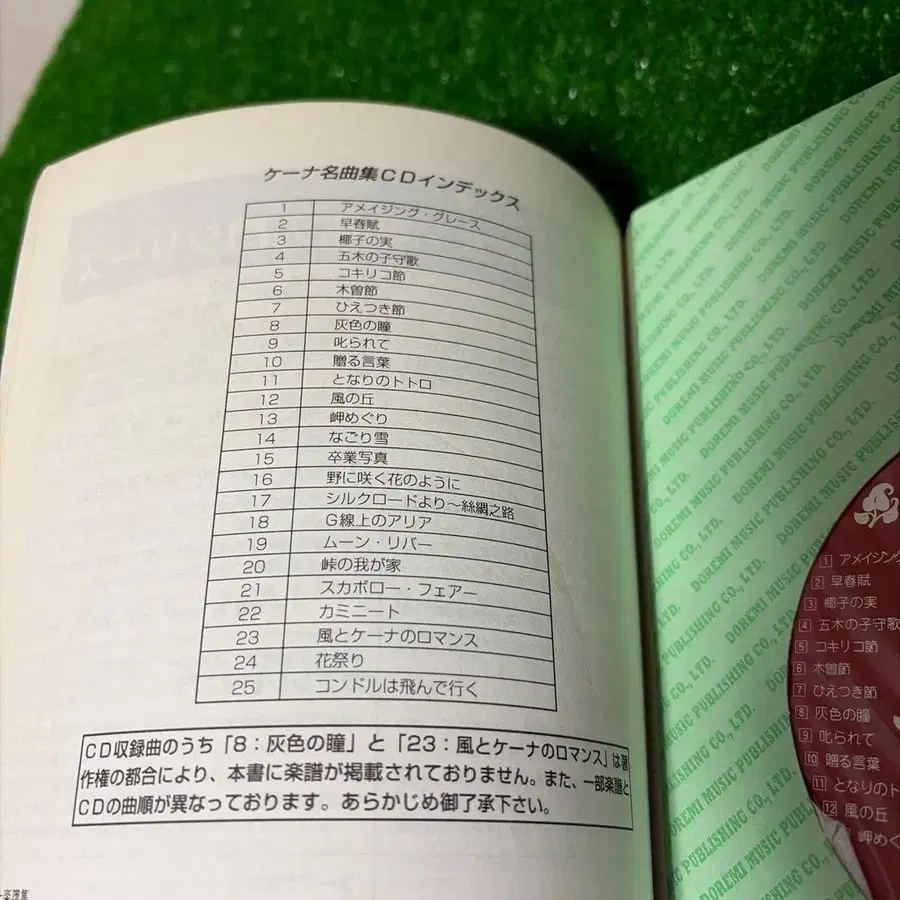 ケーナ名曲集CDインデックス
1 アメイジング・グレース
2 早春賦
3 椰子の実
4 五木の子守歌
5 コキリコ節
6 木曽節
7 ひえつき節
8 灰色の瞳
9 叱られて
10 贈る言葉
11 となりのトトロ
12 風の丘
13 岬めぐり
14 なごり雪
15 卒業写真
16 野に咲く花のように
17 シルクロードより〜絲綢之路
18 G線上のアリア
19 ムーン・リバー
20 峠の我が家
21 スカボロー・フェアー
22 カミニート
23 風とケーナのロマンス
24 花祭り
25 コンドルは飛んで行く
CD収録曲のうち「8：灰色の瞳」と「23：風とケーナのロマンス」は著
作権の都合により、本書に楽譜が掲載されておりません。また、一部楽譜と
CDの曲順が異なっております。あらかじめ御了承下さい。
DOREMI MUSIC PUBLISHING CO., LTD.
1 アメイジング
2 早春賦
3 椰子の実
4 五木の子守歌
5 コキリコ節
6 木曽節
7 ひえつき節
8 灰色の瞳
9 叱られて
10 贈る言葉
11 となりのト
12 風の丘
岬めぐ